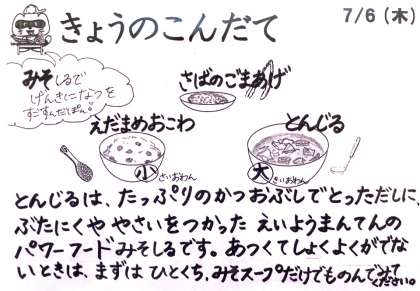 きょうのこんだて
7/6 (木)
みそしるで
げんきになつを
すごすんだぽん!
さばのごまあげ
えだまめおこわ
とんじる
小 さいおわん
大 きいおわん
とんじるは、たっぷりのかつおぶしでとっただしに、
ぶたにくや やさいをつかった えいようまんてんの
パワーフードみそしるです。あつくてしょくよくがでな
いときは、まずは ひとくち、みそスープだけでものんでみて
ください。